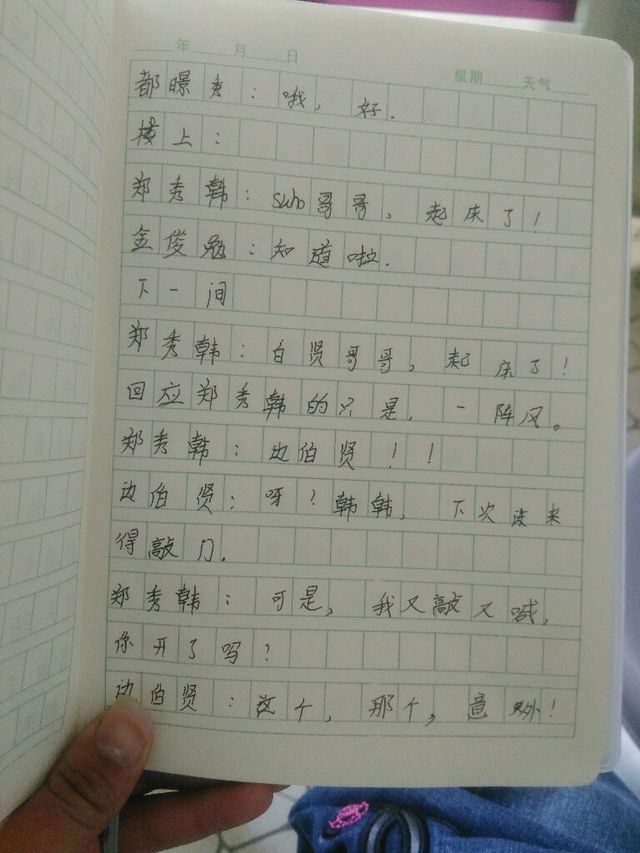 年 月 日 星期 天气
都暻秀：哦，好.
楼上：
郑秀韩：suho哥哥，起床了！
金俊勉：知道啦.
下一间
郑秀韩：白贤哥哥，起床了！
回应郑秀韩的只是，一阵风。
郑秀韩：边伯贤！！
边伯贤：呀？韩韩，下次进来
得敲门.
郑秀韩：可是，我又敲又喊，
你开了吗？
边伯贤：这个，那个，意外！